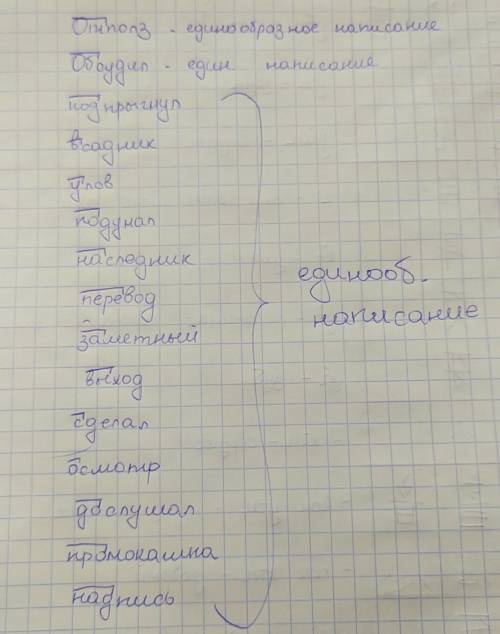 Отполз - единообразное написание
Обсудил - един написание
подпрыгнул
всадник
улов
подумал
наследник
перевод
заметный
выход
сделал
осмотр
дослушал
промокашка
надпись
единооб.
написание